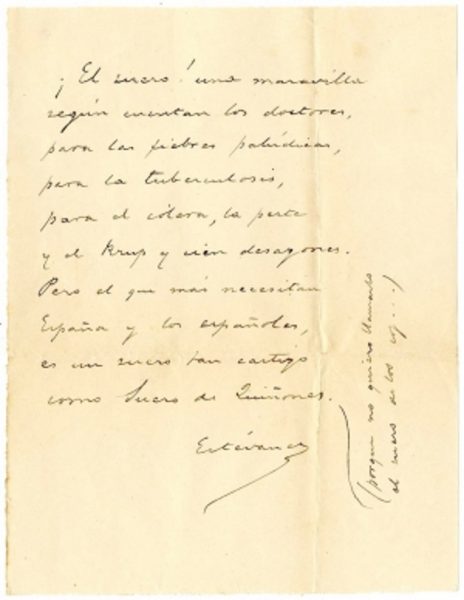 ¡El suero! una maravilla
según cuentan los doctores,
para las fiebres palúdicas,
para la tuberculosis,
para el cólera, la peste
y el Krup y cien desazones.
Pero el que más necesitan
España y los españoles,
es un suero tan castizo
como Suero de Quiñones.
Estévanez
(porque no quiero llamarle
el suero de los coj...)